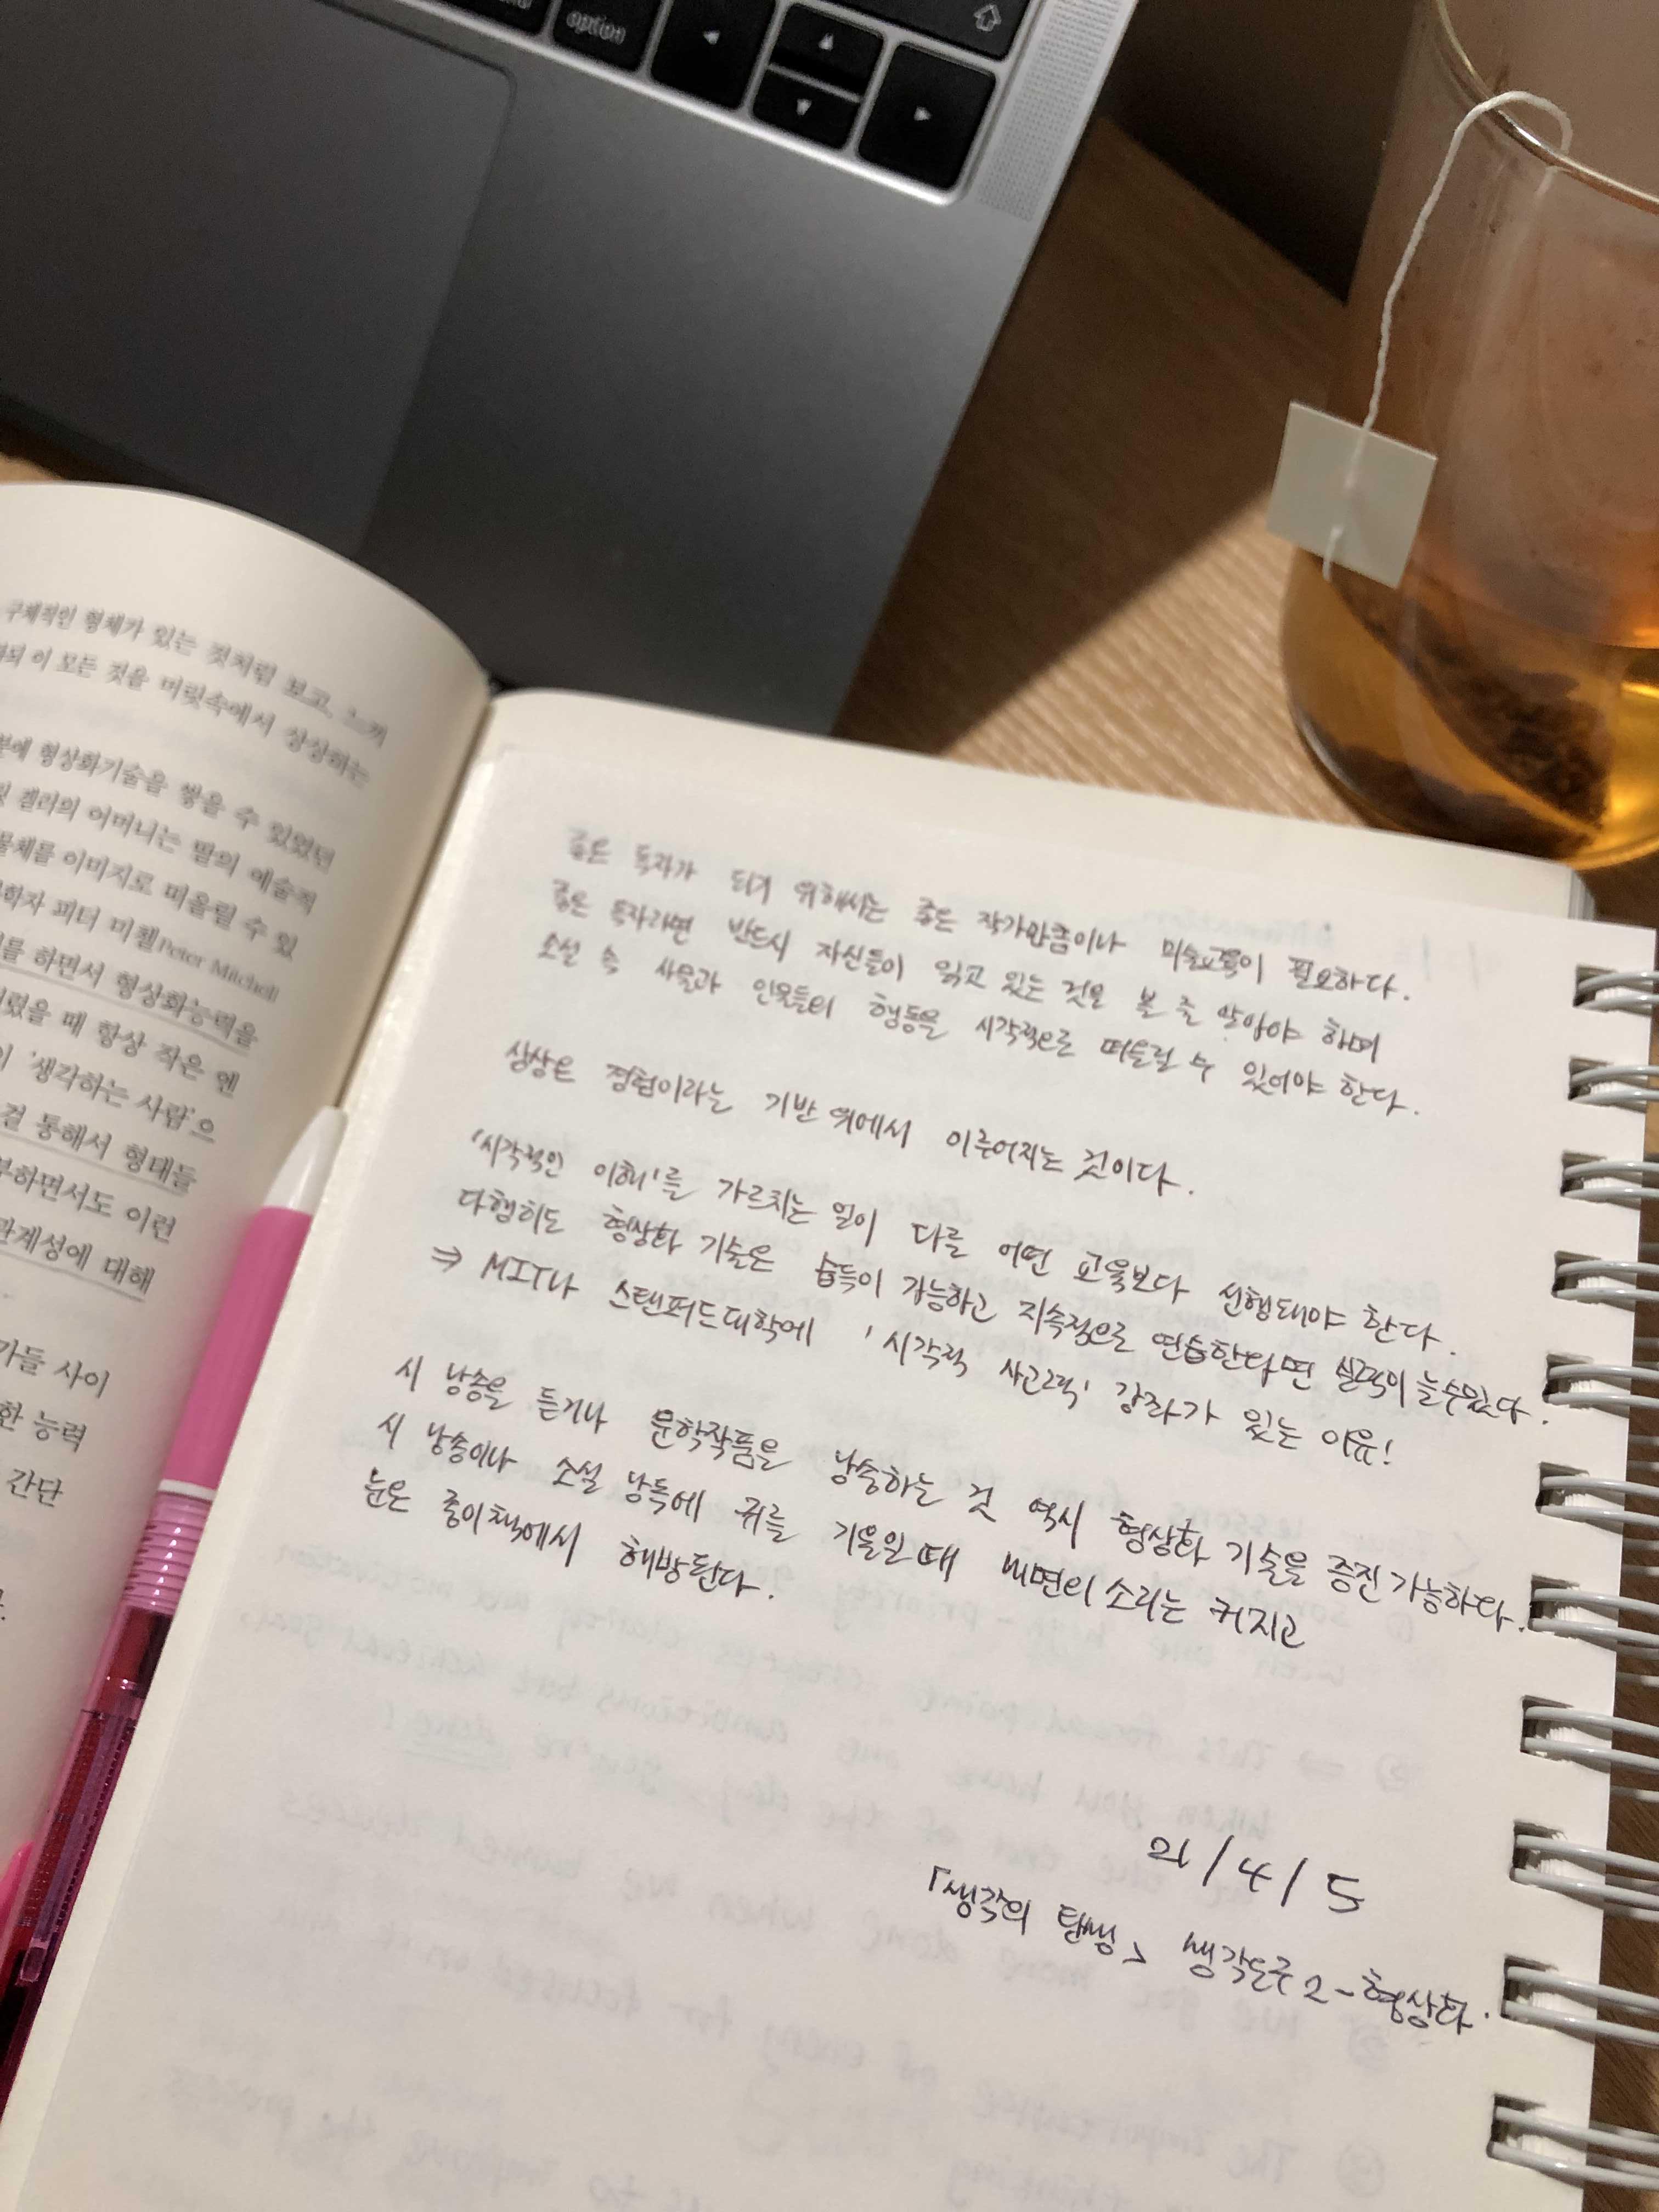 option
구체적인 형체가 있는 것처럼 보고, 느끼
이 모든 것을 머릿속에서 상상하는
형상화기술을 쌓을 수 있었던
켈러의 어머니는 딸의 예술적
물체를 이미지로 떠올릴 수 있
피터 미첼Peter Mitchell
를 하면서 형상화능력을
렸을 때 항상 작은 엔
'생각하는 사람'으
걸 통해서 형태들
부하면서도 이런
관계성에 대해
가들 사이
한 능력
간단
좋은 독자가 되기 위해서는 좋은 작가만큼이나 미술교육이 필요하다.
좋은 독자라면 반드시 자신들이 읽고 있는 것을 볼 줄 알아야 하며
소설 속 사물과 인물들의 행동을 시각적으로 떠올릴 수 있어야 한다.
상상은 경험이라는 기반 위에서 이루어지는 것이다.
'시각적인 이해'를 가르치는 일이 다른 어떤 교육보다 선행돼야 한다.
다행히도 형상화 기술은 습득이 가능하고 지속적으로 연습한다면 실력이 늘 수 있다.
⇒ MIT나 스탠퍼드대학에 '시각적 사고력' 강좌가 있는 이유!
시 낭송을 듣거나 문학작품을 낭송하는 것 역시 형상화 기술을 증진 가능하다.
시 낭송이나 소설 낭독에 귀를 기울일 때 내면의 소리는 커지고
눈은 종이책에서 해방된다.
21/4/5
「생각의 탄생> 생각도구2-형상화.